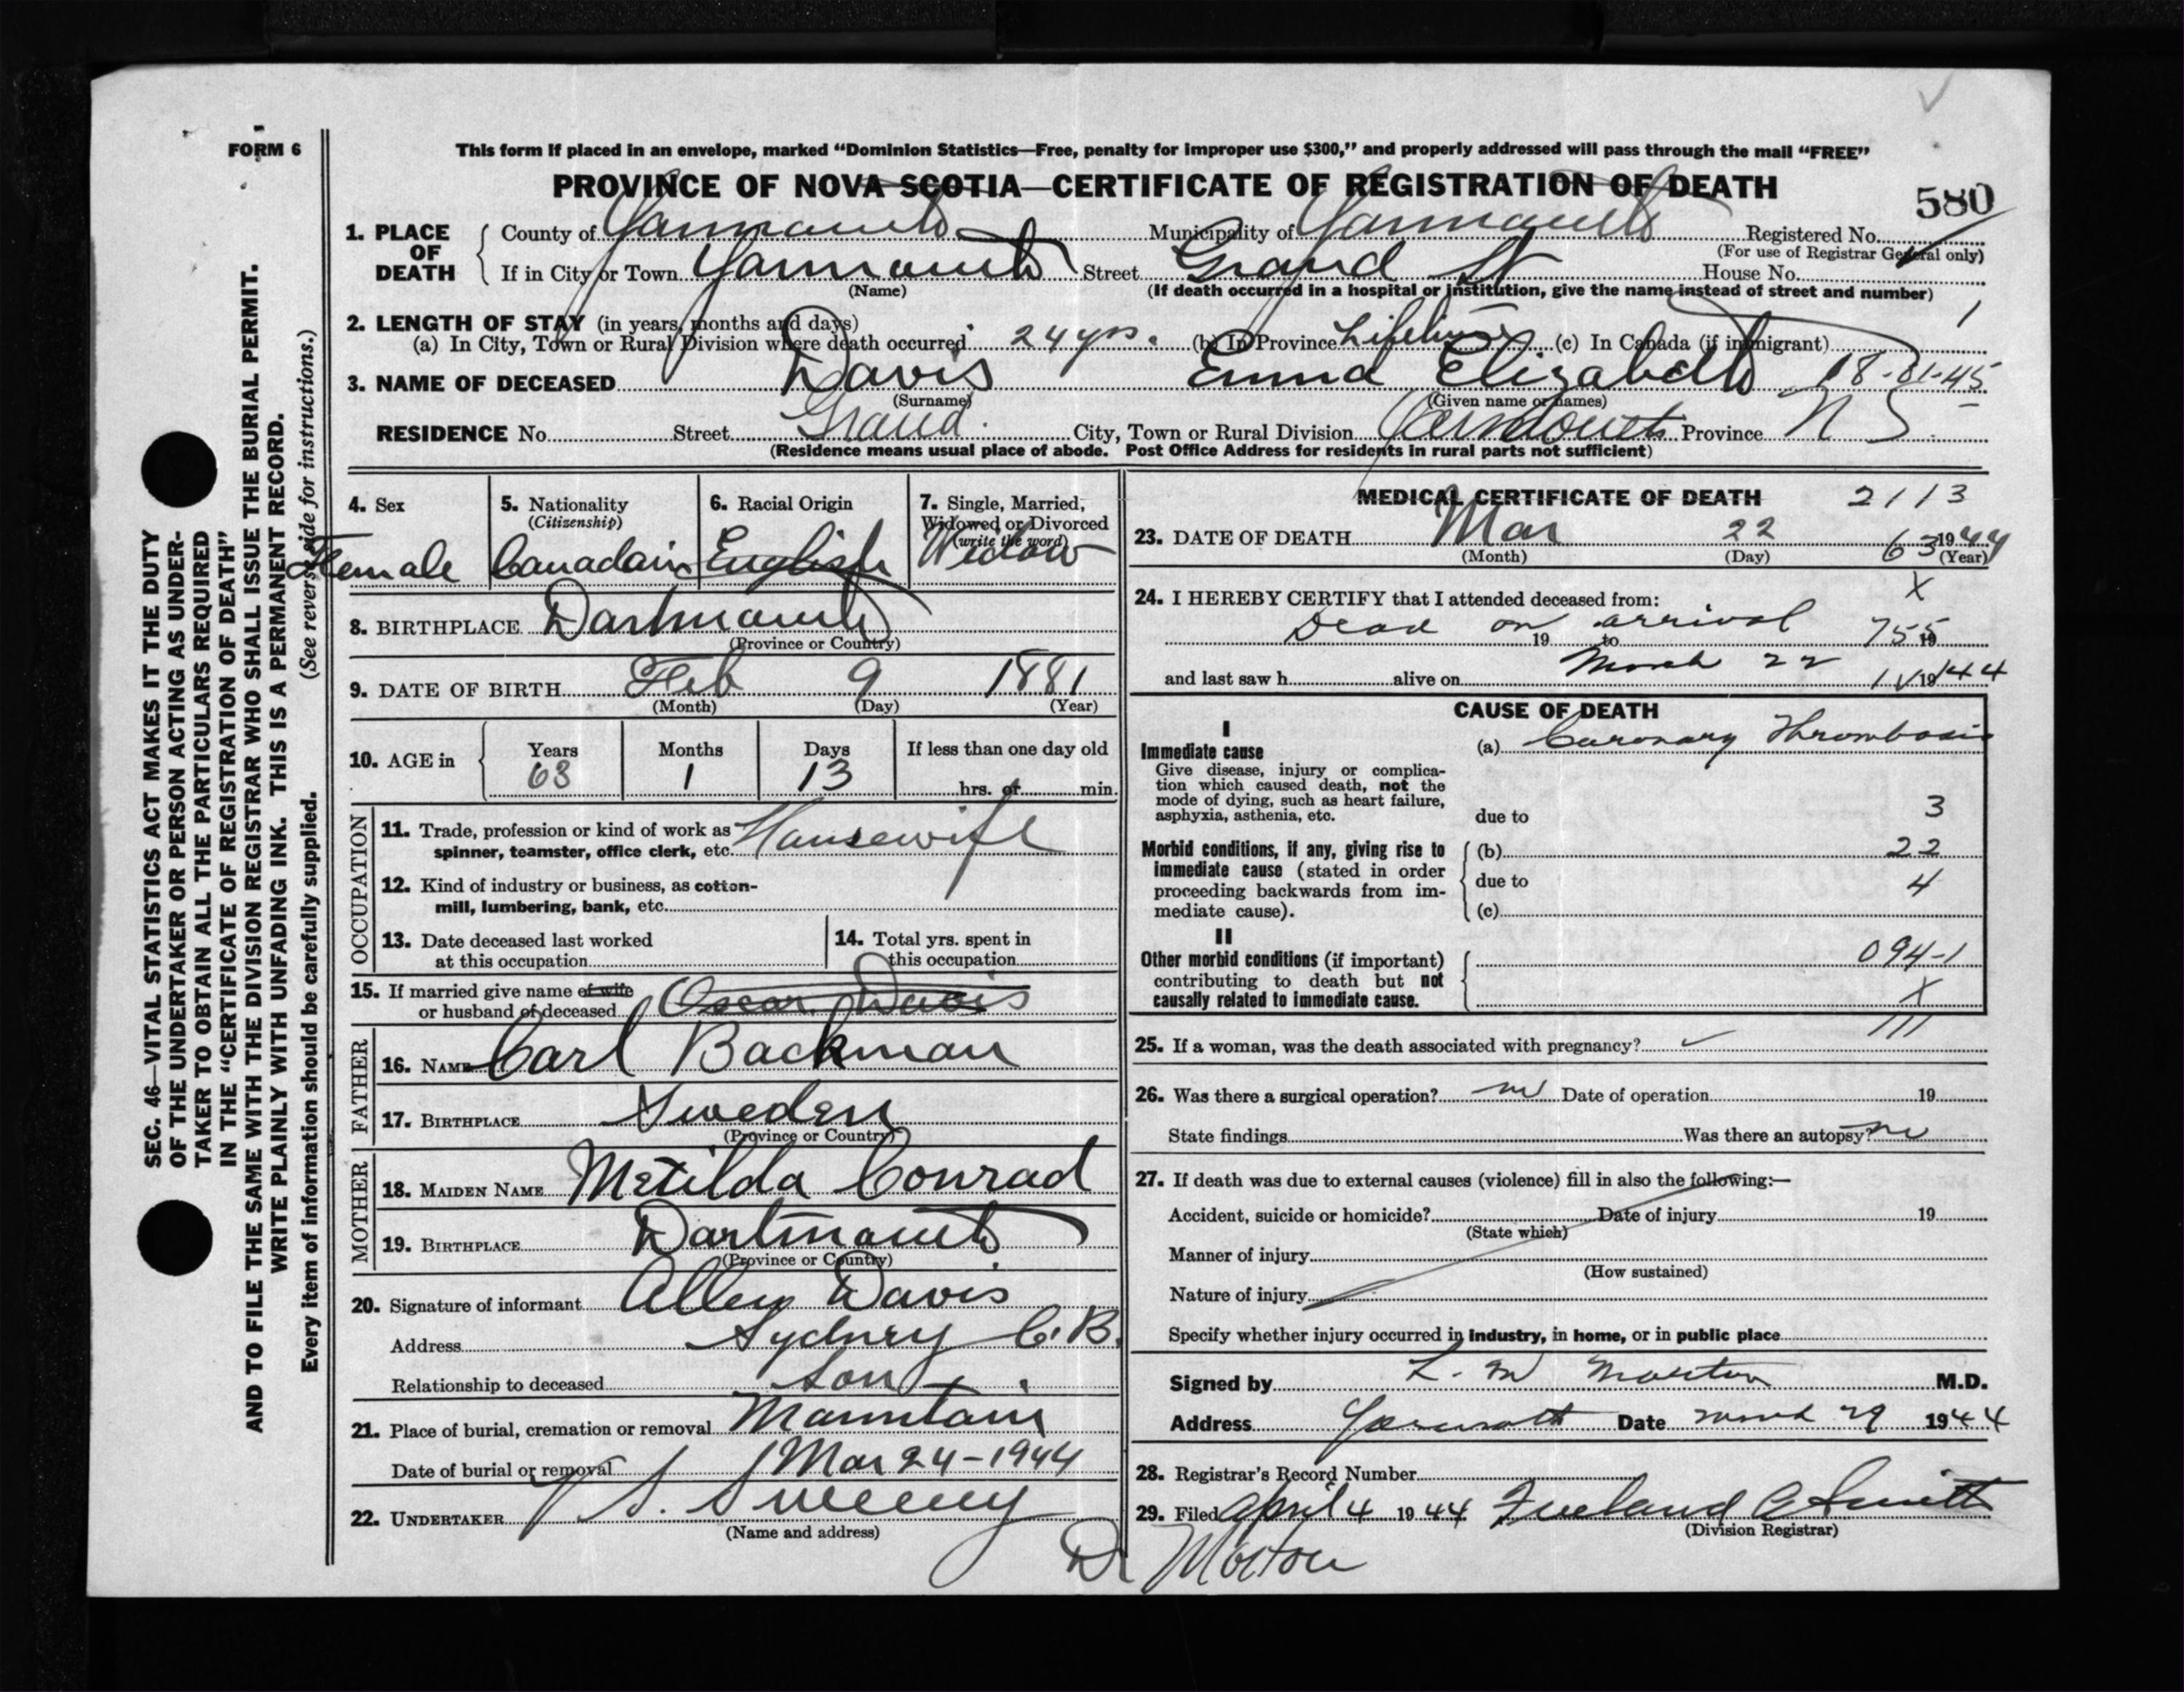 FORM 6
This form if placed in an envelope, marked “Dominion Statistics—Free, penalty for improper use $300,” and properly addressed will pass through the mail “FREE”
PROVINCE OF NOVA SCOTIA—CERTIFICATE OF REGISTRATION OF DEATH
580
1. PLACE OF DEATH
County of Yarmouth Municipality of Yarmouth Registered No.
(For use of Registrar General only)
If in City or Town Yarmouth Street Grand St House No.
(Name) (If death occurred in a hospital or institution, give the name instead of street and number)
2. LENGTH OF STAY (in years, months and days) 1
(a) In City, Town or Rural Division where death occurred 24 yrs. (b) In Province Lifetime (c) In Canada (if immigrant)
3. NAME OF DECEASED Davis Emma Elizabeth 18-81-45
(Surname) (Given name or names)
RESIDENCE No. Street Grand City, Town or Rural Division Yarmouth Province N S.
(Residence means usual place of abode. Post Office Address for residents in rural parts not sufficient)
4. Sex Female
5. Nationality (Citizenship) Canadain
6. Racial Origin English
7. Single, Married, Widowed or Divorced (write the word) Widow
8. BIRTHPLACE Dartmouth
(Province or Country)
9. DATE OF BIRTH Feb 9 1881
(Month) (Day) (Year)
10. AGE in Years Months Days If less than one day old
63 1 13 hrs. or min.
OCCUPATION
11. Trade, profession or kind of work as
spinner, teamster, office clerk, etc. Housewife
12. Kind of industry or business, as cotton-
mill, lumbering, bank, etc.
13. Date deceased last worked
at this occupation
14. Total yrs. spent in
this occupation
15. If married give name of wife
or husband of deceased Oscar Davis
FATHER
16. NAME Carl Backman
17. BIRTHPLACE Sweden
(Province or Country)
MOTHER
18. MAIDEN NAME Metilda Conrad
19. BIRTHPLACE Dartmouth
(Province or Country)
20. Signature of informant Allen Davis
Address Sydney C.B.
Relationship to deceased Son
21. Place of burial, cremation or removal Mountain
Date of burial or removal Mar 24-1944
22. UNDERTAKER V S. Sweeny
(Name and address)
MEDICAL CERTIFICATE OF DEATH 2113
23. DATE OF DEATH Mar 22 63 1944
(Month) (Day) (Year)
24. I HEREBY CERTIFY that I attended deceased from: X
Dead on arrival 19 to 755 19
March 22
and last saw h alive on 1944
CAUSE OF DEATH
I
Immediate cause
Give disease, injury or complica-
tion which caused death, not the
mode of dying, such as heart failure,
asphyxia, asthenia, etc.
(a) Coronary Thrombosis
3
due to
Morbid conditions, if any, giving rise to
immediate cause (stated in order
proceeding backwards from im-
mediate cause).
(b) 22
due to 4
(c)
II
Other morbid conditions (if important)
contributing to death but not
causally related to immediate cause.
094-1
X
25. If a woman, was the death associated with pregnancy?
26. Was there a surgical operation? no Date of operation 19
State findings Was there an autopsy? no
27. If death was due to external causes (violence) fill in also the following:—
Accident, suicide or homicide? Date of injury 19
(State which)
Manner of injury
(How sustained)
Nature of injury
Specify whether injury occurred in industry, in home, or in public place
Signed by L. M Morton M.D.
Address Yarmouth Date March 29 1944
28. Registrar's Record Number
29. Filed April 4 1944 Freeland A Smith
(Division Registrar)
Dr Morton
SEC. 46—VITAL STATISTICS ACT MAKES IT THE DUTY
OF THE UNDERTAKER OR PERSON ACTING AS UNDER-
TAKER TO OBTAIN ALL THE PARTICULARS REQUIRED
IN THE “CERTIFICATE OF REGISTRATION OF DEATH”
AND TO FILE THE SAME WITH THE DIVISION REGISTRAR WHO SHALL ISSUE THE BURIAL PERMIT.
WRITE PLAINLY WITH UNFADING INK. THIS IS A PERMANENT RECORD.
Every item of information should be carefully supplied. (See reverse side for instructions.)